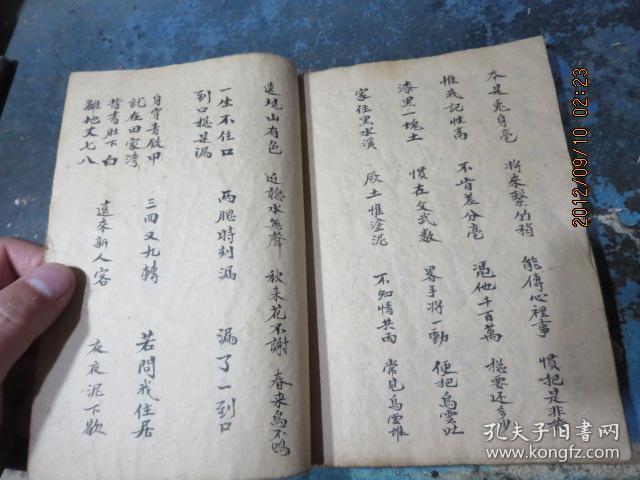 本是兎身毫 將來繫竹稍 能傳心裡事 慣把是非
惟我記性高 不肯差分毫 憑他千百萬 總要还多少
漆黑一塊土 慣在文武教 畧手將一動 便把烏雲吐
家住黑水溪 厥土惟塗泥 不知情共雨 常見烏雲堆
遠观山有色 近聽水無聲 秋来花不謝 春来鳥不鳴
一生不住口 两腮時刻漏 漏了一到口
到口總是漏
身穿青鉄甲 三四又九轉 若問我住居
託在田家灣
背青肚下白 遠来新人客 夜夜泥下歇
離地丈七八
2012/09/10 02:23
孔夫子旧书网
www.kongfz.com